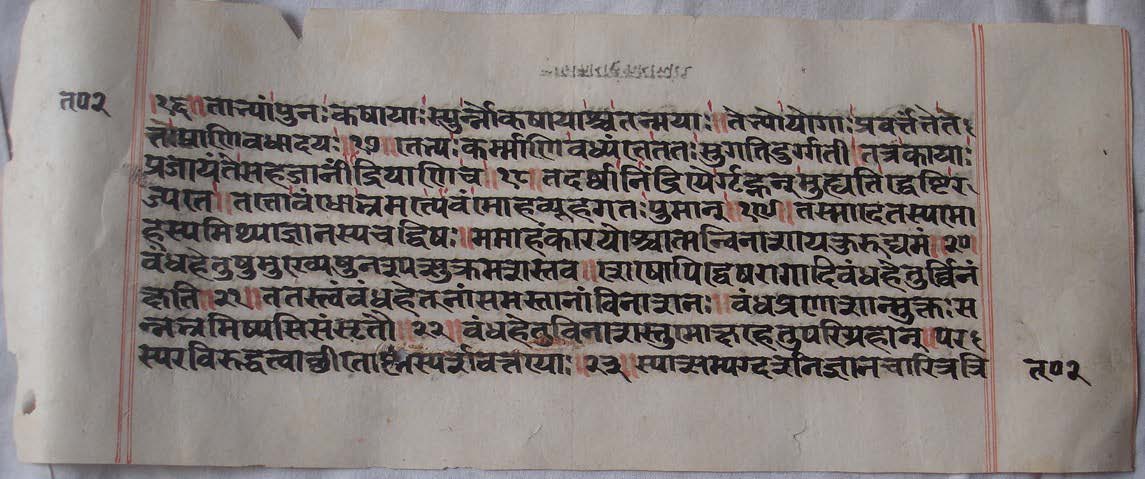 त० २
१६॥ ताभ्यां पुनः कषायाः स्युर्न्नोकषायाश्च तन्मयाः॥ तेभ्यो योगाः प्रवर्त्तंते ते
त्तो प्राणिवधादयः॥१७॥ तेभ्यः कर्म्माणि वध्यंते ततः सुगतिदुर्ग्गती तत्र कायाः
प्रजायंते सहजानींद्रियाणि च॥१८॥ तदर्थानिंद्रियैर्गृह्णन् मुह्यति द्वेष्टि र
ज्यते॥ ततो वंधो भ्रमत्येवं मोहव्यूहगतः पुमान्॥१९॥ तस्मादेतस्य मो
हस्य मिथ्याज्ञानस्य च द्विषः॥ ममाहंकारयोश्चात्मन्विनाशाय कुरुद्यमं॥२०
वंधहेतुषु मुख्येषु नश्यत्सु क्रमशस्तव॥ शेषोपि द्वेषरागादिवंधहेतुर्व्विनं
क्ष्यति॥२१॥ ततस्त्वं वंधहेतूनां समस्तानां विनाशनः॥ वंधप्रणाशान्मुक्तः स
न्नभ्रमिष्यसि संसृतौ॥२२॥ वंधहेतुविनाशस्तु मोक्षहेतुपरिग्रहात्॥ पर
स्परविरुद्धत्वाच्छीतोष्णस्पर्शवत्तयोः॥२३॥ स्यात्सम्यग्दर्शनज्ञानचारित्रत्रि
त० २